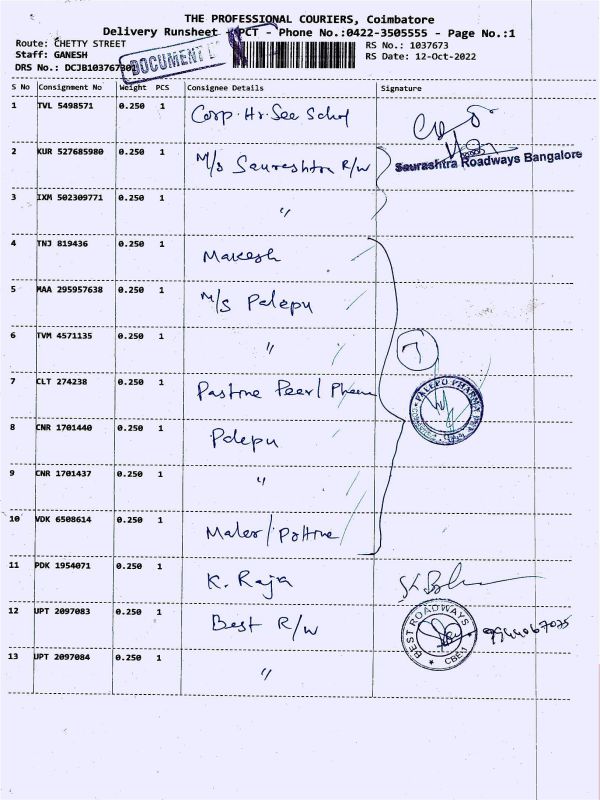 THE PROFESSIONAL COURIERS, Coimbatore
Delivery Runsheet - PCT - Phone No.:0422-3505555 - Page No.:1
Route: CHETTY STREET
RS No.: 1037673
Staff: GANESH
RS Date: 12-Oct-2022
DRS No.: DCJB103767
DOCUMENT
S No Consignment No Weight PCS Consignee Details Signature
1 TVL 5498571 0.250 1 Corp. Hr. Sec School
2 KUR 527685980 0.250 1 M/s Saurashtra R/w
Saurashtra Roadways Bangalore
3 IXM 502309771 0.250 1 "
4 TNJ 819436 0.250 1 Makesh
5 MAA 295957638 0.250 1 M/s Palepu
6 TVM 4571135 0.250 1 "
7
7 CLT 274238 0.250 1 Peerl
PALEPU PHARMA
8 CNR 1701440 0.250 1 Palepu
9 CNR 1701437 0.250 1 "
10 VDK 6508614 0.250 1
11 PDK 1954071 0.250 1 K. Raja
12 UPT 2097083 0.250 1 Best R/w
BEST ROADWAYS
CBE-1
13 UPT 2097084 0.250 1 "